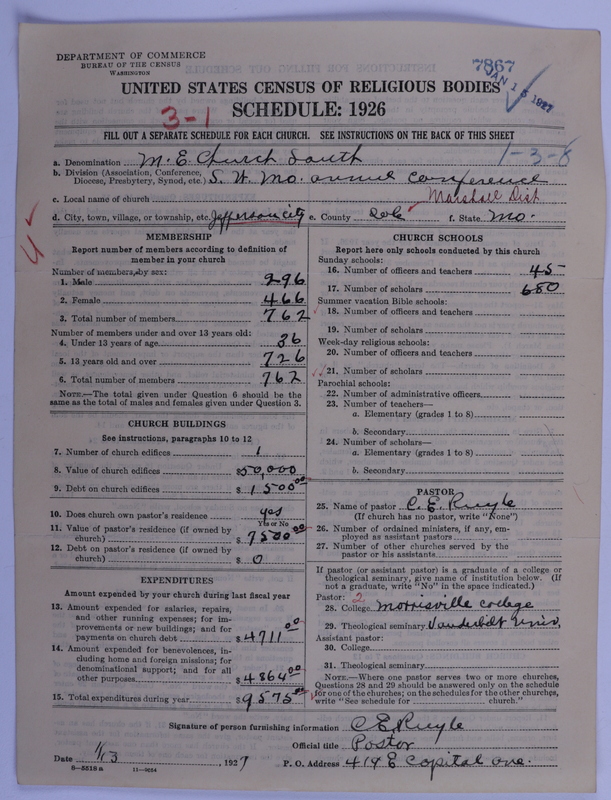 DEPARTMENT OF COMMERCE
BUREAU OF THE CENSUS
WASHINGTON
7867
JAN 15 1927
UNITED STATES CENSUS OF RELIGIOUS BODIES
SCHEDULE: 1926
3-1
FILL OUT A SEPARATE SCHEDULE FOR EACH CHURCH. SEE INSTRUCTIONS ON THE BACK OF THIS SHEET
a. Denomination M. E. Church South
1-3-8
b. Division (Association, Conference, Diocese, Presbytery, Synod, etc.) S. W. Mo. annual Conference
c. Local name of church
Marshall Dist
d. City, town, village, or township, etc. Jefferson City e. County Cole f. State Mo.
MEMBERSHIP
Report number of members according to definition of
member in your church
Number of members, by sex:
1. Male 296
2. Female 466
3. Total number of members 762
Number of members under and over 13 years old:
4. Under 13 years of age 36
5. 13 years old and over 726
6. Total number of members 762
NOTE.—The total given under Question 6 should be
same as the total of males and females given under Question 3.
CHURCH BUILDINGS
See instructions, paragraphs 10 to 12
7. Number of church edifices 1
8. Value of church edifices $50,000
9. Debt on church edifices $ 1500 00
10. Does church own pastor's residence? yes
Yes or No
11. Value of pastor's residence (if owned by
church) $ 7500 00
12. Debt on pastor's residence (if owned by
church) $ 0
EXPENDITURES
Amount expended by your church during last fiscal year
13. Amount expended for salaries, repairs,
and other running expenses; for im-
provements or new buildings; and for
payments on church debt $ 4711 00
14. Amount expended for benevolences, in-
cluding home and foreign missions; for
denominational support; and for all
other purposes $ 4864 00
15. Total expenditures during year $ 9575 00
CHURCH SCHOOLS
Report here only schools conducted by this church
Sunday schools:
16. Number of officers and teachers 45
17. Number of scholars 680
Summer vacation Bible schools:
18. Number of officers and teachers
19. Number of scholars
Week-day religious schools:
20. Number of officers and teachers
21. Number of scholars
Parochial schools:
22. Number of administrative officers
23. Number of teachers—
a. Elementary (grades 1 to 8)
b. Secondary
24. Number of scholars—
a. Elementary (grades 1 to 8)
b. Secondary
PASTOR
25. Name of pastor C. E. Ruyle
(If church has no pastor, write "None")
26. Number of ordained ministers, if any, em-
ployed as assistant pastors
27. Number of other churches served by the
pastor or his assistants
If pastor (or assistant pastor) is a graduate of a college or
theological seminary, give name of institution below. (If
not a graduate, write "No" in the space indicated.)
Pastor: 2
28. College Morrisville college
29. Theological seminary Vanderbilt Univ.
Assistant pastor:
30. College
31. Theological seminary
NOTE.—Where one pastor serves two or more churches,
Questions 28 and 29 should be answered only on the schedule
for one of the churches; on the schedules for the other churches,
write "See schedule for church."
Signature of person furnishing information C E Ruyle
Official title Pastor
Date 1/13, 1927 P. O. Address 419 E Capital ave.
8—5518 a 11—9054